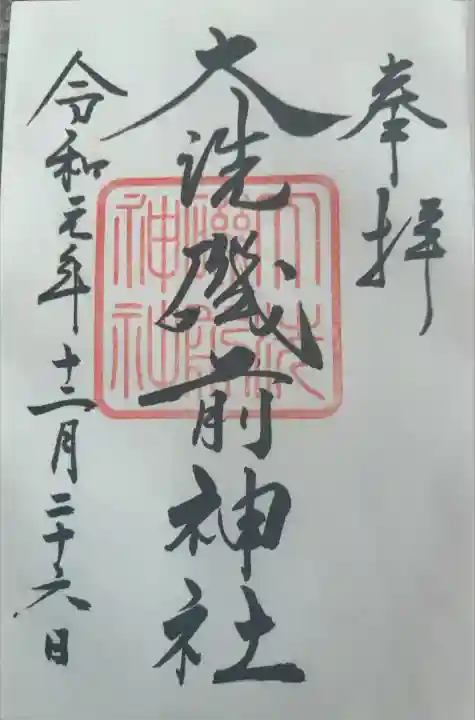 奉拝
大洗磯前神社
大洗磯前神社
令和元年十二月二十六日